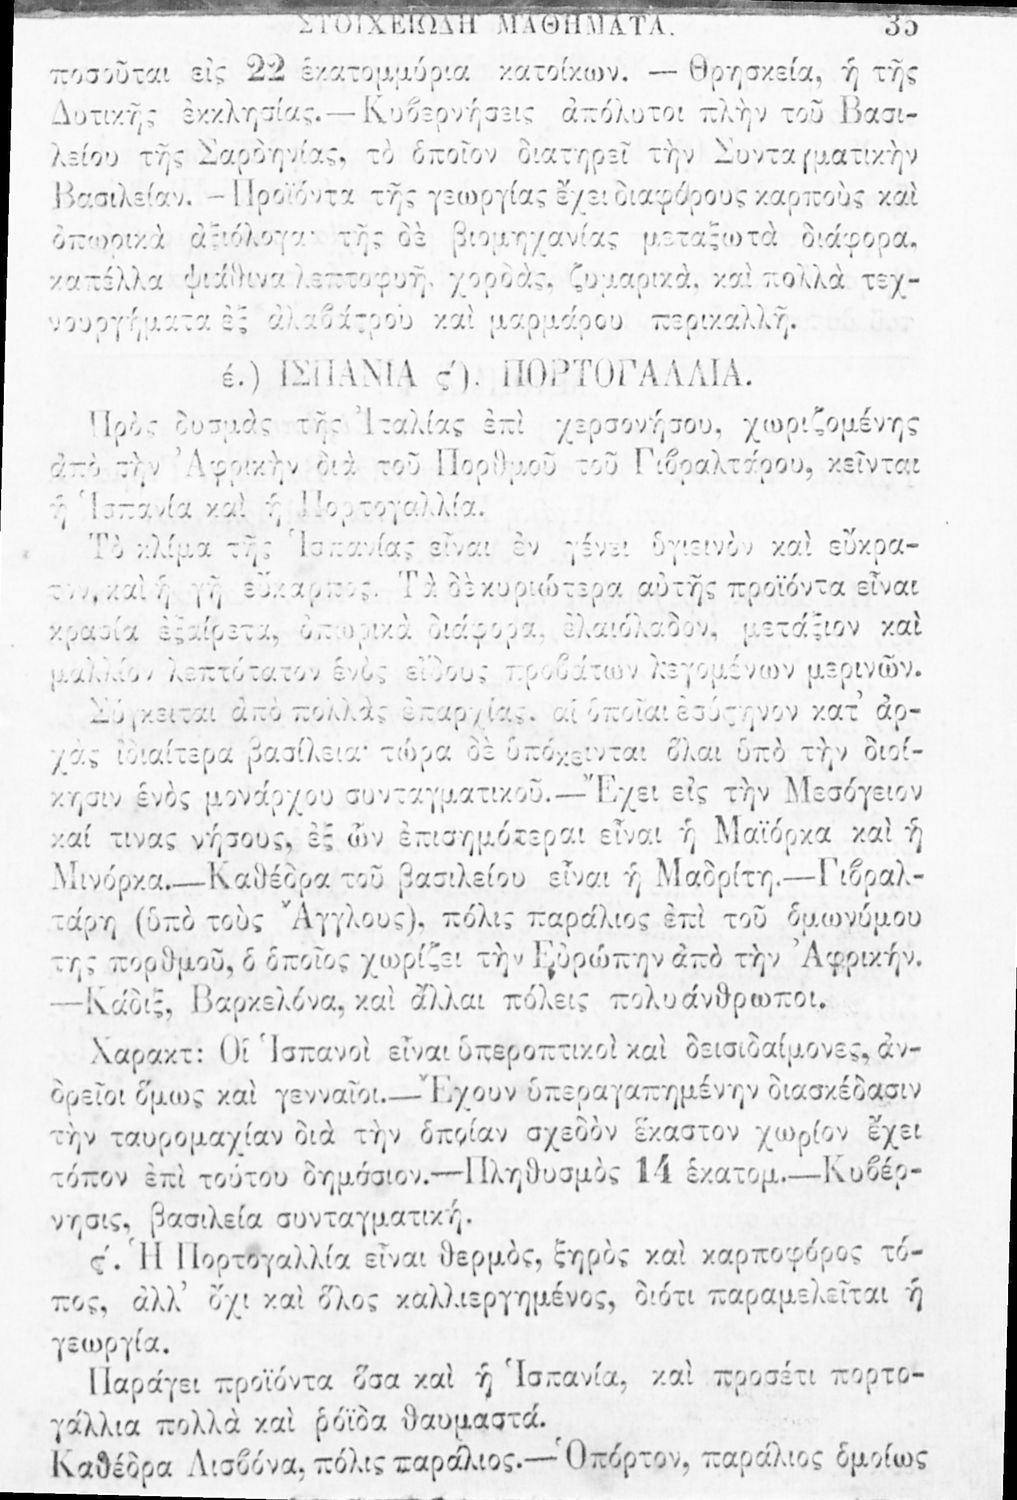 ΣΤΟΙΧΕΙΩΔΗ ΜΑΘΗΜΑΤΑ. 35
ποσοῦται εἰς 22 ἑκατομμύρια κατοίκων. — Θρησκεία, ἡ τῆς
Δυτικῆς ἐκκλησίας.—Κυβερνήσεις ἀπόλυτοι πλὴν τοῦ Βασι-
λείου τῆς Σαρδηνίας, τὸ ὁποῖον διατηρεῖ τὴν Συνταγματικὴν
Βασιλείαν. —Προϊόντα τῆς γεωργίας ἔχει διαφόρους καρποὺς καὶ
ὀπωρικὰ ἀξιόλογα· τῆς δὲ βιομηχανίας μεταξωτὰ διάφορα,
καπέλλα ψιάθινα λεπτοφυῆ, χορδὰς, ζυμαρικὰ, καὶ πολλὰ τεχ-
νουργήματα ἐξ ἀλαβάϛρου καὶ μαρμάρου περικαλλῆ.
έ.) ΙΣΠΑΝΙΑ ϛ'). ΠΟΡΤΟΓΑΛΛΙΑ.
Πρὸς δυσμὰς τῆς Ἰταλίας ἐπὶ χερσονήσου, χωριζομένης
ἀπὸ τὴν Ἀφρικὴν διὰ τοῦ Πορθμοῦ τοῦ Γιβραλτάρου, κεῖνται
ἡ Ἱσπανία καὶ ἡ Πορτογαλλία.
Τὸ κλίμα τῆς Ἱσπανίας εἶναι ἐν γένει ὑγιεινὸν καὶ εὔκρα-
τον, καὶ ἡ γῆ εὔκαρπος. Τὰ δὲ κυριώτερα αὐτῆς προϊόντα εἶναι
κρασία ἐξαίρετα, ὀπωρικὰ διάφορα, ἐλαιόλαδον, μετάξιον καὶ
μαλλίον λεπτότατον ἑνὸς εἴδους προβάτων λεγομένων μερινῶν.
Σύγκειται ἀπὸ πολλὰς ἐπαρχίας, αἱ ὁποῖαι ἐσύϛηνον κατ' ἀρ-
χὰς ἰδιαίτερα βασίλεια· τώρα δὲ ὑπόκεινται ὅλαι ὑπὸ τὴν διοί-
κησιν ἑνὸς μονάρχου συνταγματικοῦ.—Ἔχει εἰς τὴν Μεσόγειον
καί τινας νήσους, ἐξ ὧν ἐπισημότεραι εἶναι ἡ Μαϊόρκα καὶ ἡ
Μινόρκα.—Καθέδρα τοῦ βασιλείου εἶναι ἡ Μαδρίτη.—Γιβραλ-
τάρη (ὑπὸ τοὺς Ἄγγλους), πόλις παράλιος ἐπὶ τοῦ ὁμωνύμου
της πορθμοῦ, ὁ ὁποῖος χωρίζει τὴν Εὐρώπην ἀπὸ τὴν Ἀφρικήν.
—Κάδιξ, Βαρκελόνα, καὶ ἄλλαι πόλεις πολυάνθρωποι.
Χαρακτ: Οἱ Ἱσπανοὶ εἶναι ὑπεροπτικοὶ καὶ δεισιδαίμονες, ἀν-
δρεῖοι ὅμως καὶ γενναῖοι.—Ἔχουν ὑπεραγαπημένην διασκέδασιν
τὴν ταυρομαχίαν διὰ τὴν ὁποίαν σχεδὸν ἕκαστον χωρίον ἔχει
τόπον ἐπὶ τούτου δημόσιον.—Πληθυσμὸς 14 ἑκατομ.—Κυβέρ-
νησις, βασιλεία συνταγματική.
ϛ'. Ἡ Πορτογαλλία εἶναι θερμὸς, ξηρὸς καὶ καρποφόρος τό-
πος, ἀλλ' ὄχι καὶ ὅλος καλλιεργημένος, διότι παραμελεῖται ἡ
γεωργία.
Παράγει προϊόντα ὅσα καὶ ἡ Ἱσπανία, καὶ προσέτι πορτο-
γάλλια πολλὰ καὶ ῥόϊδα θαυμαστά.
Καθέδρα Λισβόνα, πόλις παράλιος.—Ὁπόρτον, παράλιος ὁμοίως